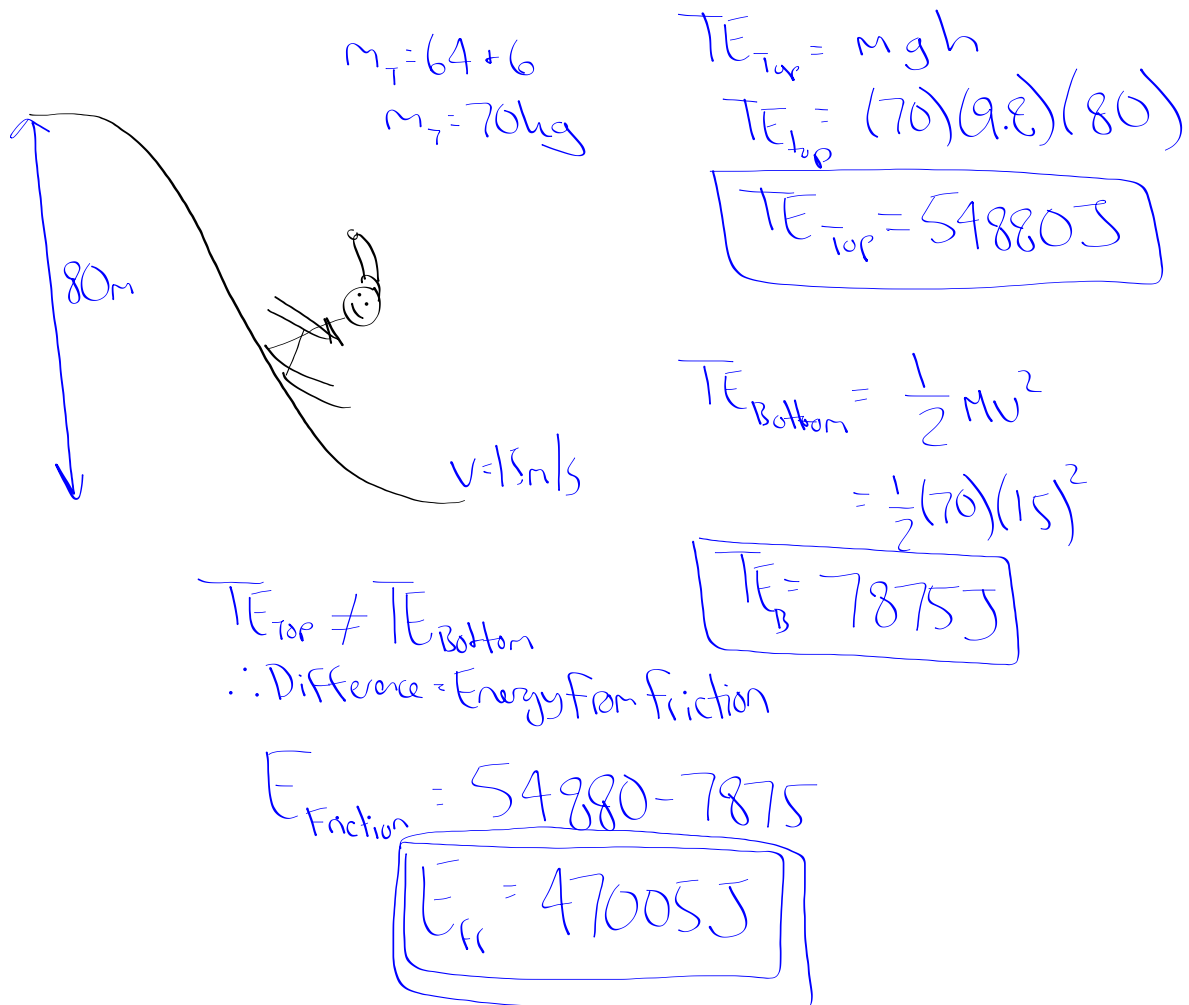 m_T = 64 + 6
m_T = 70kg
80m
v = 15m/s
TE_Top = mgh
TE_top = (70)(9.8)(80)
TE_Top = 54880J
TE_Bottom = 1/2 mv²
= 1/2 (70)(15)²
TE_B = 7875J
TE_Top ≠ TE_Bottom
∴ Difference = Energy from friction
E_Friction = 54880 - 7875
E_fr = 47005J